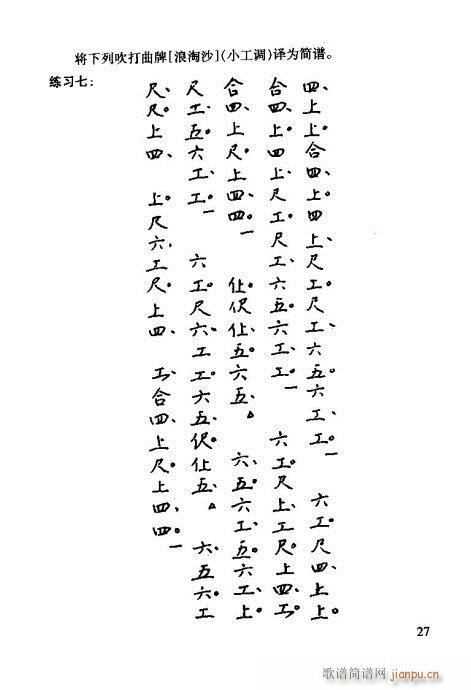 将下列吹打曲牌[浪淘沙](小工调)译为简谱。
练习七:
四、上、上。合四、上。四上、尺工。尺工、六五。六工、工。一 六工。尺四、上、上。
合四、上。四上、尺工。尺工、六五。六工、工。一 六工。尺上、工尺。上四、工。
合四、上尺。上四、四。一 仩、伬仩、五。六五、△ 六、五。六工、五。六工、上。
尺工、五。六工、工。一 六工。尺六、工工。六五。伬仩、五、△ 六、五六。工
尺、尺。上四、 上。尺六、工尺。上四、 工、合四、上尺。上四、四。一
27
歌谱简谱网
jianpu.cn